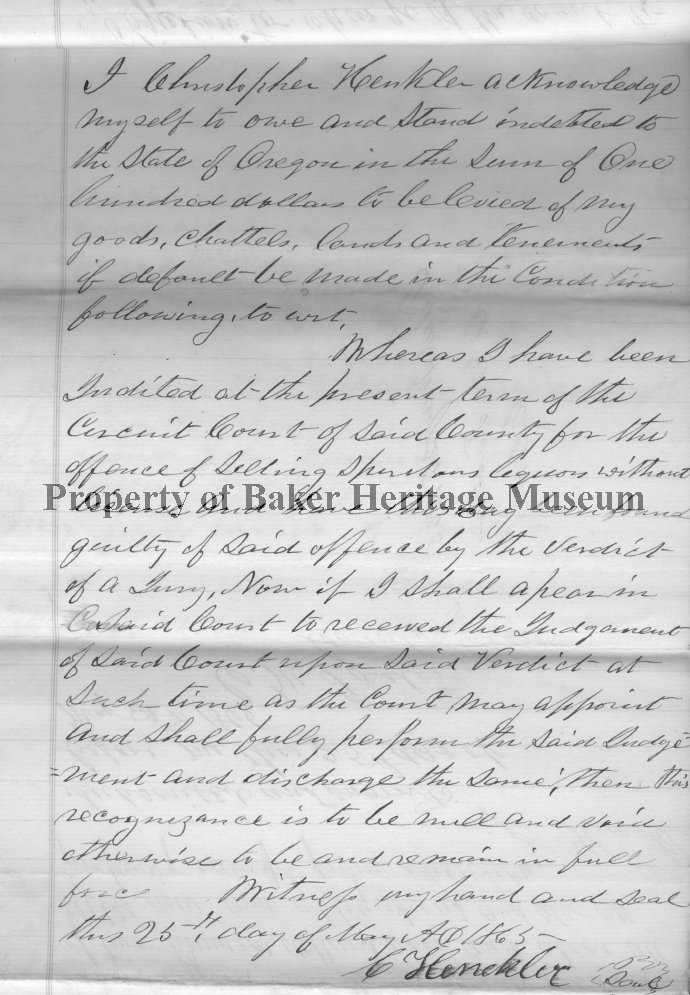 I Christopher Henkler acknowledge
myself to owe and stand indebted to
the State of Oregon in the Sum of One
hundred dollars to be levied of my
goods, chattels, lands and tenements
if default be made in the Condition
following, to wit,
Whereas I have been
Indited at the present term of the
Circuit Court of Said County for the
offence of Selling Spiritous liquors without
Property of Baker Heritage Museum
have this day been found
guilty of Said offence by the Verdict
of a Jury, Now if I shall apear in
Said Court to received the Judgament
of Said Court upon Said Verdict at
Such time as the Court may appoint
and Shall fully perform the Said Judge=
=ment and discharge the Same, then this
recognizance is to be null and void
otherwise to be and remain in full
force Witness my hand and Seal
this 25th, day of May AD 1865
C Henckler Seal